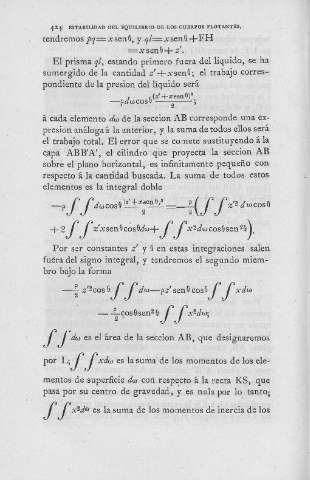 424 ESTABILIDAD DEL EQUILIBRIO DE LOS CUERPOS FLOTANTES.
tendremos pq=x senθ, y ql=x senθ+FH
=x senθ+z'.
El prisma ql, estando primero fuera del líquido, se ha
sumergido de la cantidad z'+x senθ; el trabajo corres-
pondiente de la presion del líquido será
—ρdω cosθ (z'+x senθ)²/2;
á cada elemento dω de la seccion AB corresponde una ex-
presion análoga á la anterior, y la suma de todos ellos será
el trabajo total. El error que se comete sustituyendo á la
capa ABB'A', el cilindro que proyecta la seccion AB
sobre el plano horizontal, es infinitamente pequeño con
respecto á la cantidad buscada. La suma de todos estos
elementos es la integral doble
—ρ∫∫dω cosθ (z'+x senθ)²/2=—ρ/2(∫∫z'²dω cosθ
+2∫∫z'x senθ cosθdω+∫∫x²dω cosθsen²θ).
Por ser constantes z' y θ en estas integraciones salen
fuera del signo integral, y tendremos el segundo miem-
bro bajo la forma
—ρ/2 z'²cosθ∫∫dω—ρz' senθ cosθ∫∫xdω
—ρ/2 cosθsen²θ∫∫x²dω;
∫∫dω es el área de la seccion AB, que designaremos
por L;∫∫xdω es la suma de los momentos de los ele-
mentos de superficie dω con respecto á la recta KS, que
pasa por su centro de gravedad, y es nula por lo tanto;
∫∫x²dω es la suma de los momentos de inercia de los